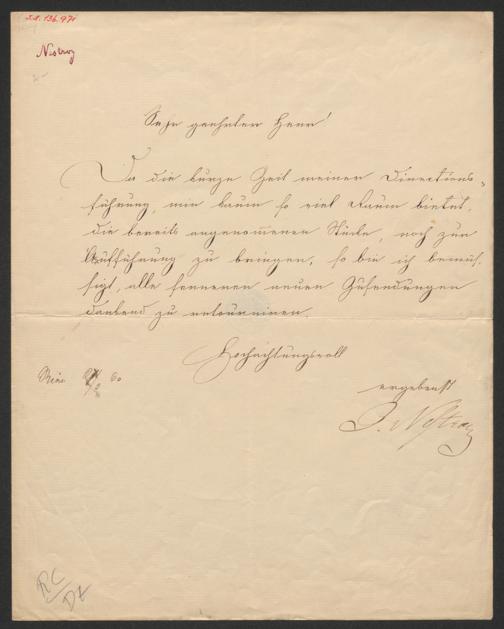 I.N. 136.971
Nestroy
Sehr geehrter Herr!
Da die kurze Zeit meiner Directions-
führung, mir kaum so viel Raum bietet,
die bereits angenommenen Stücke, noch zur
Aufführung zu bringen, so bin ich bemüs-
sigt, alle ferneren neuen Zusendungen
dankend zu retourniren.
Hochachtungsvoll
Wien 60
ergebenst
J. Nestroy